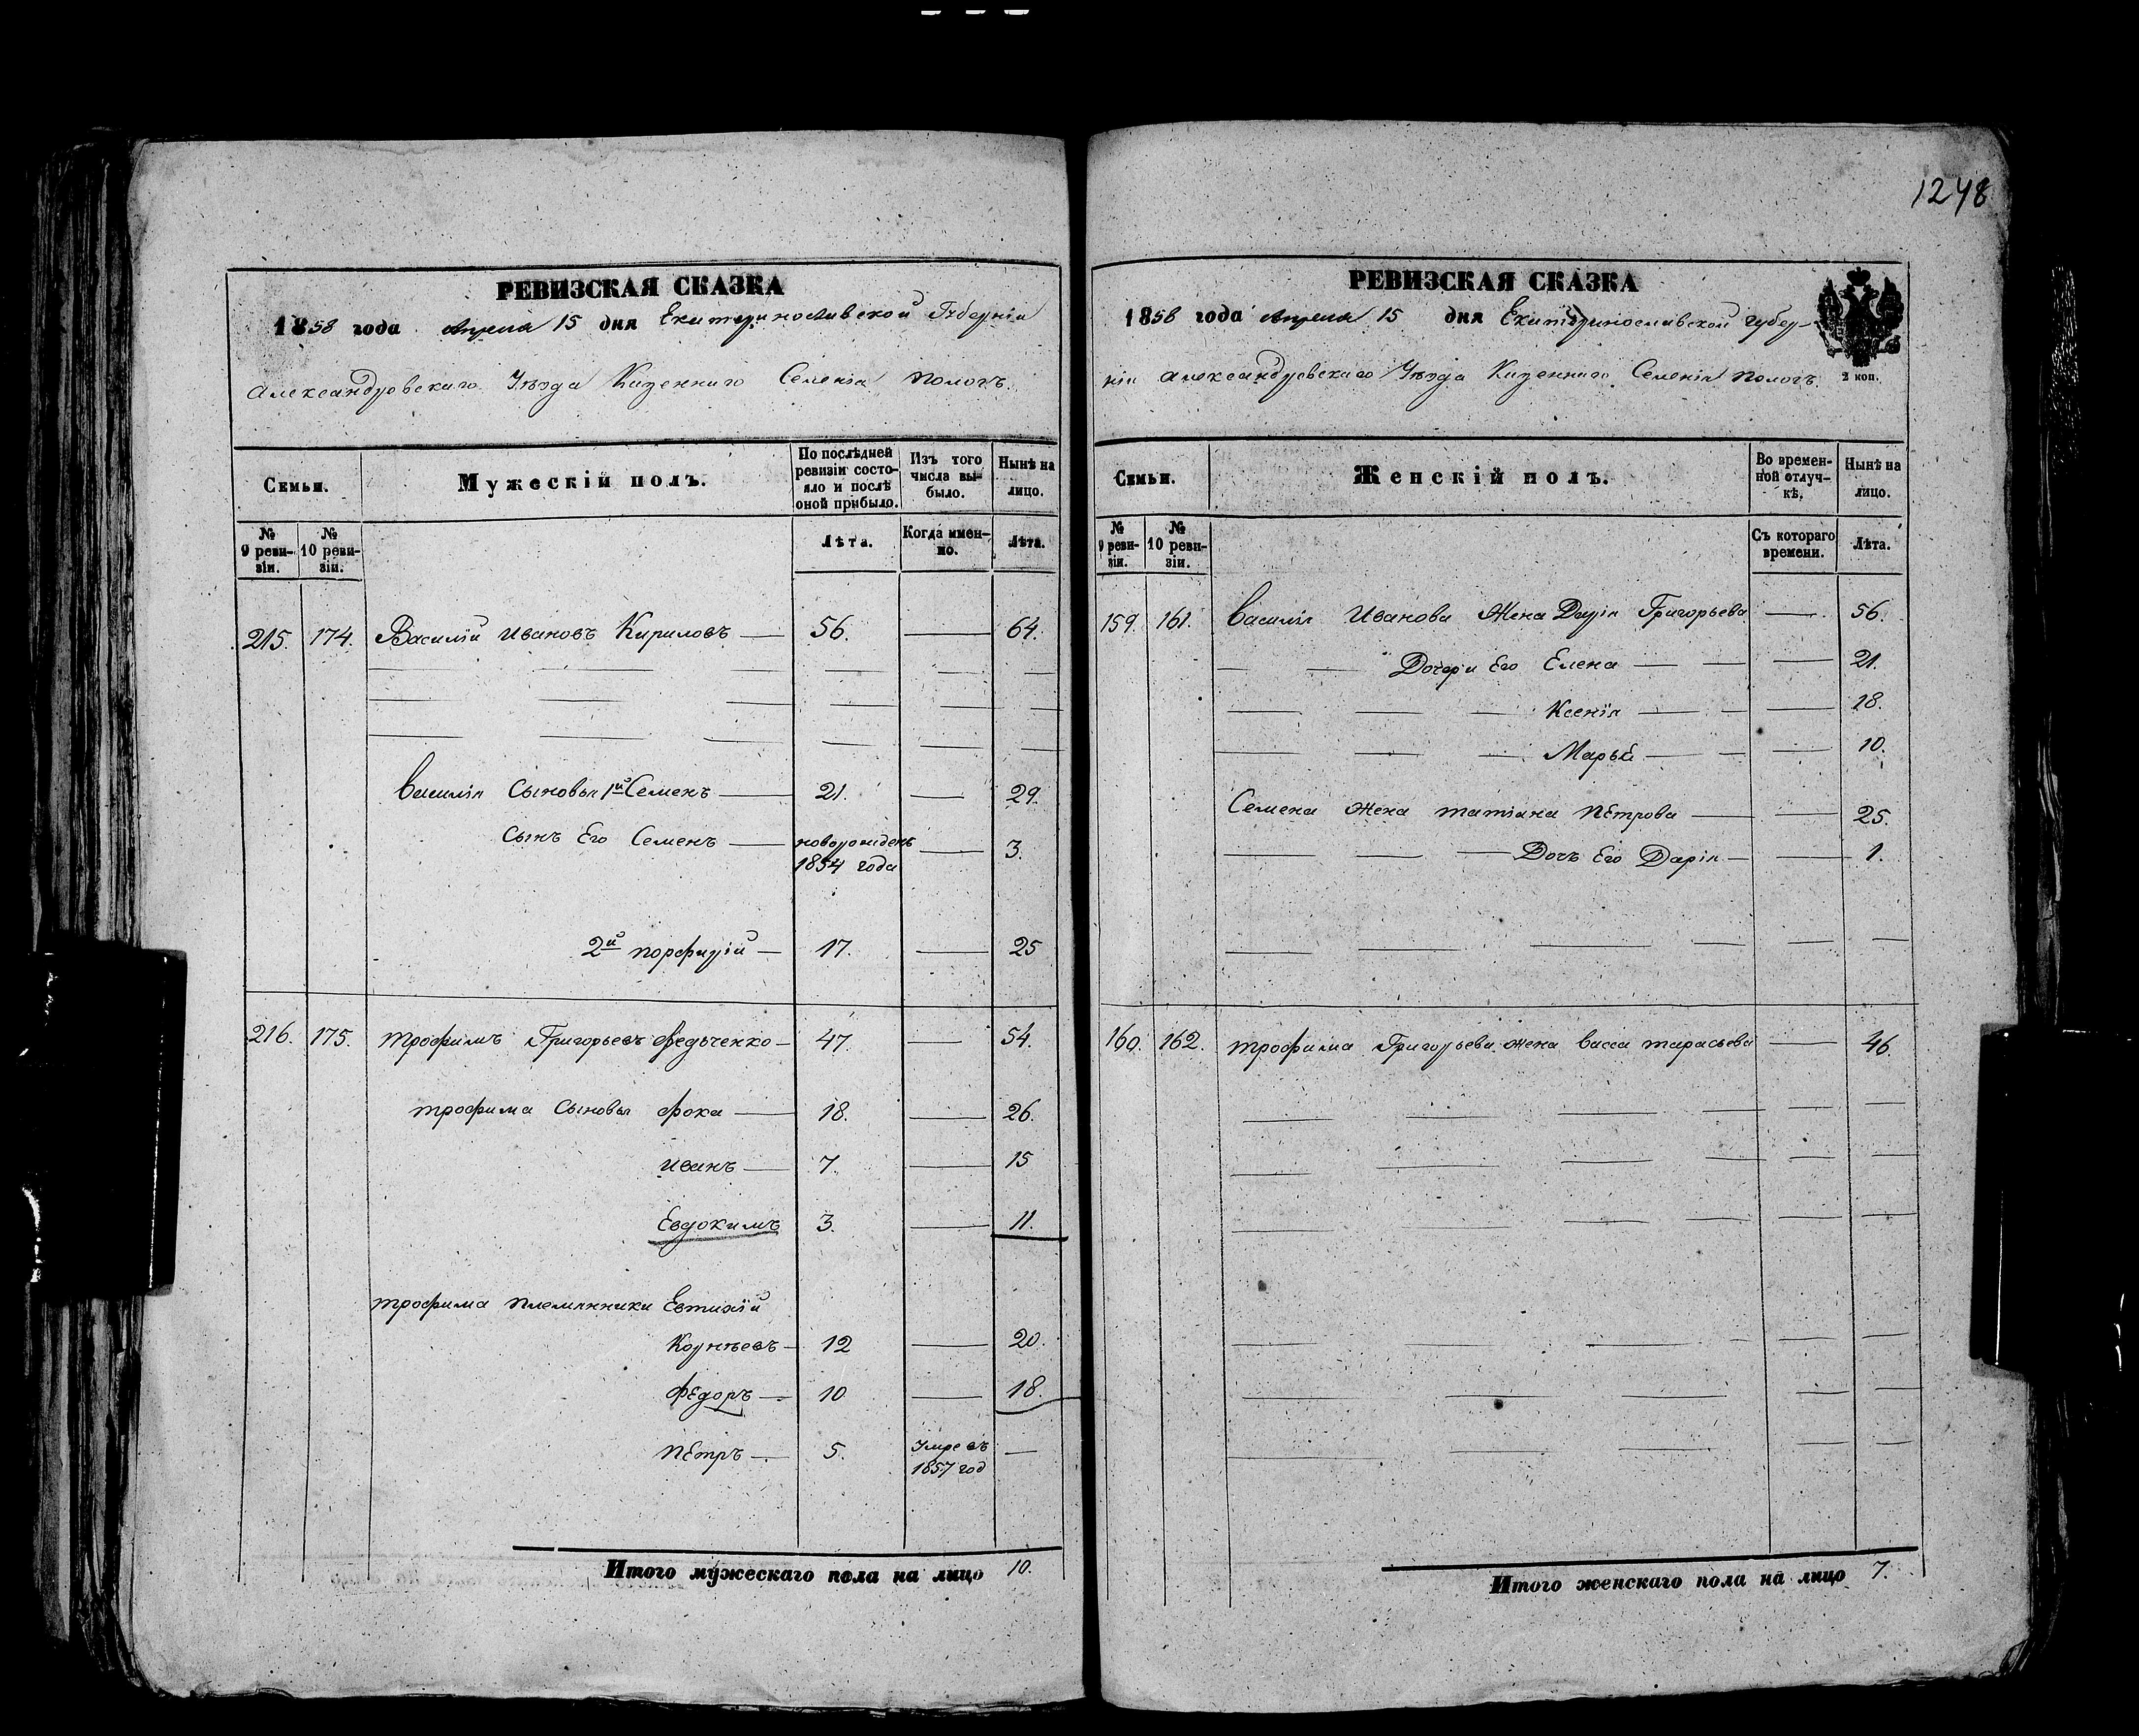 1248
РЕВИЗСКАЯ СКАЗКА
1858 года Апреля 15 дня Екатеринославской Губерніи
Александровскаго Уѣзда Казеннаго Селенія Пологъ.
Семьи.
Мужескій полъ.
По послѣдней ревизіи состояло и послѣ оной прибыло.
Изъ того числа выбыло.
Нынѣ на лицо.
№ 9 ревизіи.
№ 10 ревизіи.
Лѣта.
Когда именно.
Лѣта.
215. 174. Василій Ивановъ Кириловъ — 56. — 64.
Василія Сыновья 1й Семенъ — 21. — 29.
Сынъ Его Семенъ — новорожденъ 1854 года — 3.
2й Порфирій — 17. — 25
216. 175. Трофимъ Григорьевъ Федьченко — 47. — 54.
Трофима Сыновья Фока — 18. — 26.
Иванъ — 7. — 15
Евдокимъ 3. — 11.
Трофима племянники Евтихій
Корнѣевъ — 12 — 20.
Федоръ — 10 — 18.
Петръ — 5. Умре въ 1857 год —
Итого мужескаго пола на лицо 10.
РЕВИЗСКАЯ СКАЗКА
1858 года Апреля 15 дня Екатеринославской Губер-
ніи Александровскаго Уѣзда Казеннаго Селенія Пологъ.
2 коп.
Семьи.
Женскій полъ.
Во временной отлучкѣ.
Нынѣ на лицо.
№ 9 ревизіи.
№ 10 ревизіи.
Съ котораго времени.
Лѣта.
159. 161. Василія Иванова Жена Дарія Григорьева — 56.
Дочери Его Елена — 21.
Ксенія — 18.
Марья — 10.
Семена Жена Татіана Петрова — 25.
Дочь Его Дарія — 1.
160. 162. Трофима Григорьева жена Васса Тарасьева — 46.
Итого женскаго пола на лицо 7.